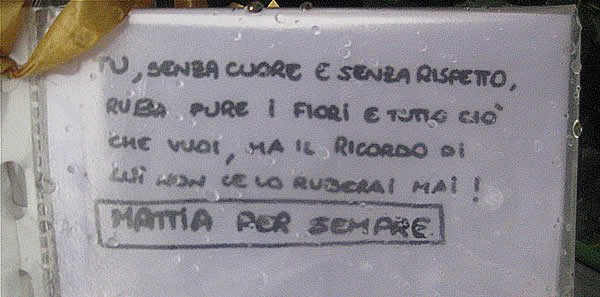 TU, SENZA CUORE E SENZA RISPETTO,
RUBA PURE I FIORI E TUTTO CIÒ
CHE VUOI, MA IL RICORDO DI
LUI NON CE LO RUBERAI MAI!
MATTIA PER SEMPRE